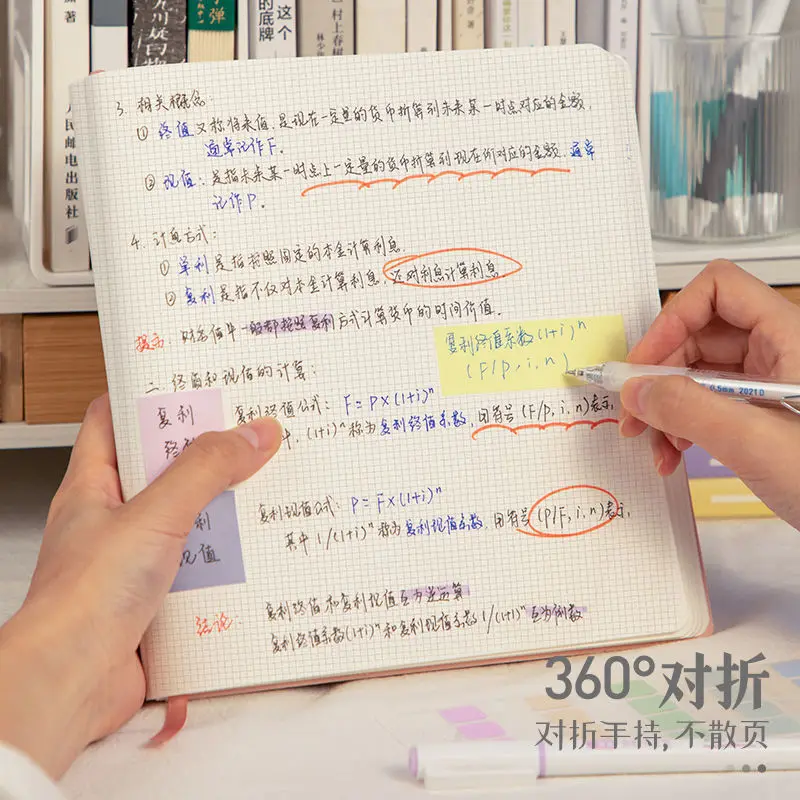 这个
的底牌
村上春树
人民邮电出版社
3. 相关概念:
① 终值又称将来值,是现在一定量的货币折算到未来某一时点对应的金额,
通常记作F.
② 现值:是指未来某一时点上一定量的货币折算到现在所对应的金额,通常
记作P.
4. 计息方式:
① 单利是指按照固定的本金计算利息.
② 复利是指不仅对本金计算利息,还对利息计算利息.
提示:财务估值中一般都按照复利方式计算货币的时间价值.
复利终值系数(1+i)ⁿ
(F/P,i,n)
二、终值和现值的计算:
复利
终利
复利终值公式: F=P×(1+i)ⁿ
中,(1+i)ⁿ称为复利终值系数,用符号(F/P,i,n)表示,
复利现值公式: P=F×(1+i)ⁿ
其中1/(1+i)ⁿ称为复利现值系数,用符号(P/F,i,n)表示,
利
现值
结论:复利终值和复利现值互为逆运算
复利终值系数(1+i)ⁿ和复利现值系数1/(1+i)ⁿ互为倒数
0.5mm 2021D
360°对折
对折手持,不散页